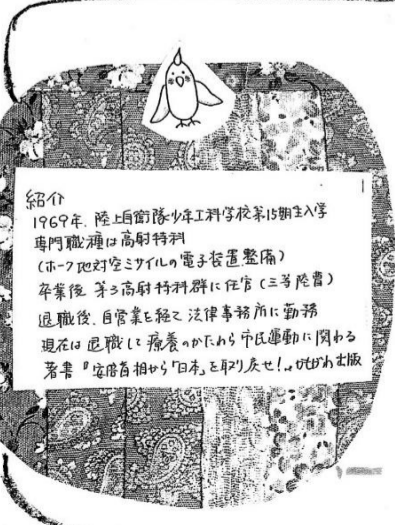 紹介
1969年、陸上自衛隊少年工科学校第15期生入学
専門職種は高射特科
(ホーク地対空ミサイルの電子装置整備)
卒業後 第3高射特科群に任官(三等陸曹)
退職後、自営業を経て 法律事務所に勤務
現在は退職して療養のかたわら市民運動に関わる
著書『安倍首相から「日本」を取り戻せ!』かもがわ出版